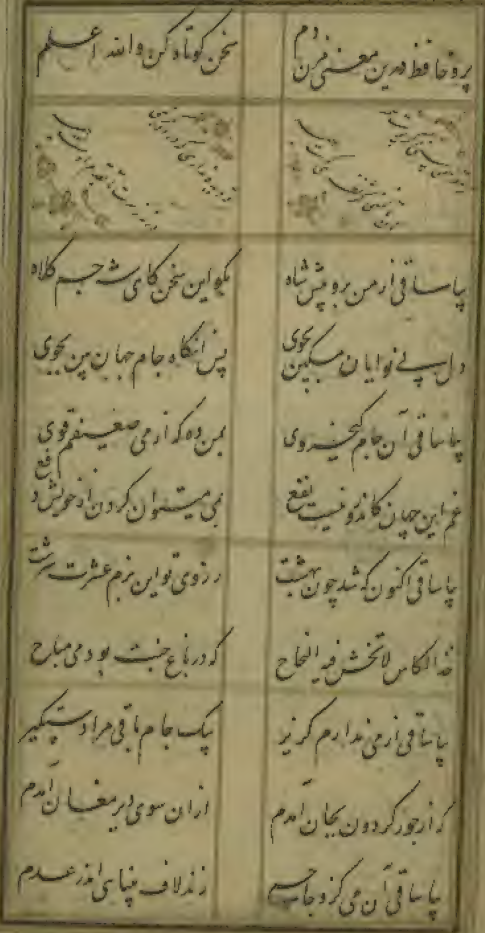 برو حافظ درین معنی مزن دم
سخن کوتاه کن والله اعلم
بیا ساقی از من برو پیش شاه
بکو این سخن کای شه جم کلاه
دل بی نوایان مسکین بجوی
پس آنکاه جام جهان بین بجوی
بیا ساقی آن جام کیخسروی
بمن ده که از می ضعیفم قوی
غم این جهان کاندرو نیست نفع
بمی میتوان کردن از خویش دفع
بیا ساقی اکنون که شد چون بهشت
ز روی تو این بزم عشرت سرشت
خذ الکاس لا تخش فیه الجناح
که در باغ جنت بود می مباح
بیا ساقی از می ندارم کزیر
بیک جام باقی مرا دستکیر
که از جور کردون بجان آمدم
ازان سوی دیر مغان آمدم
بیا ساقی آن می کزو جام جم
زند لاف بینایی اندر عدم